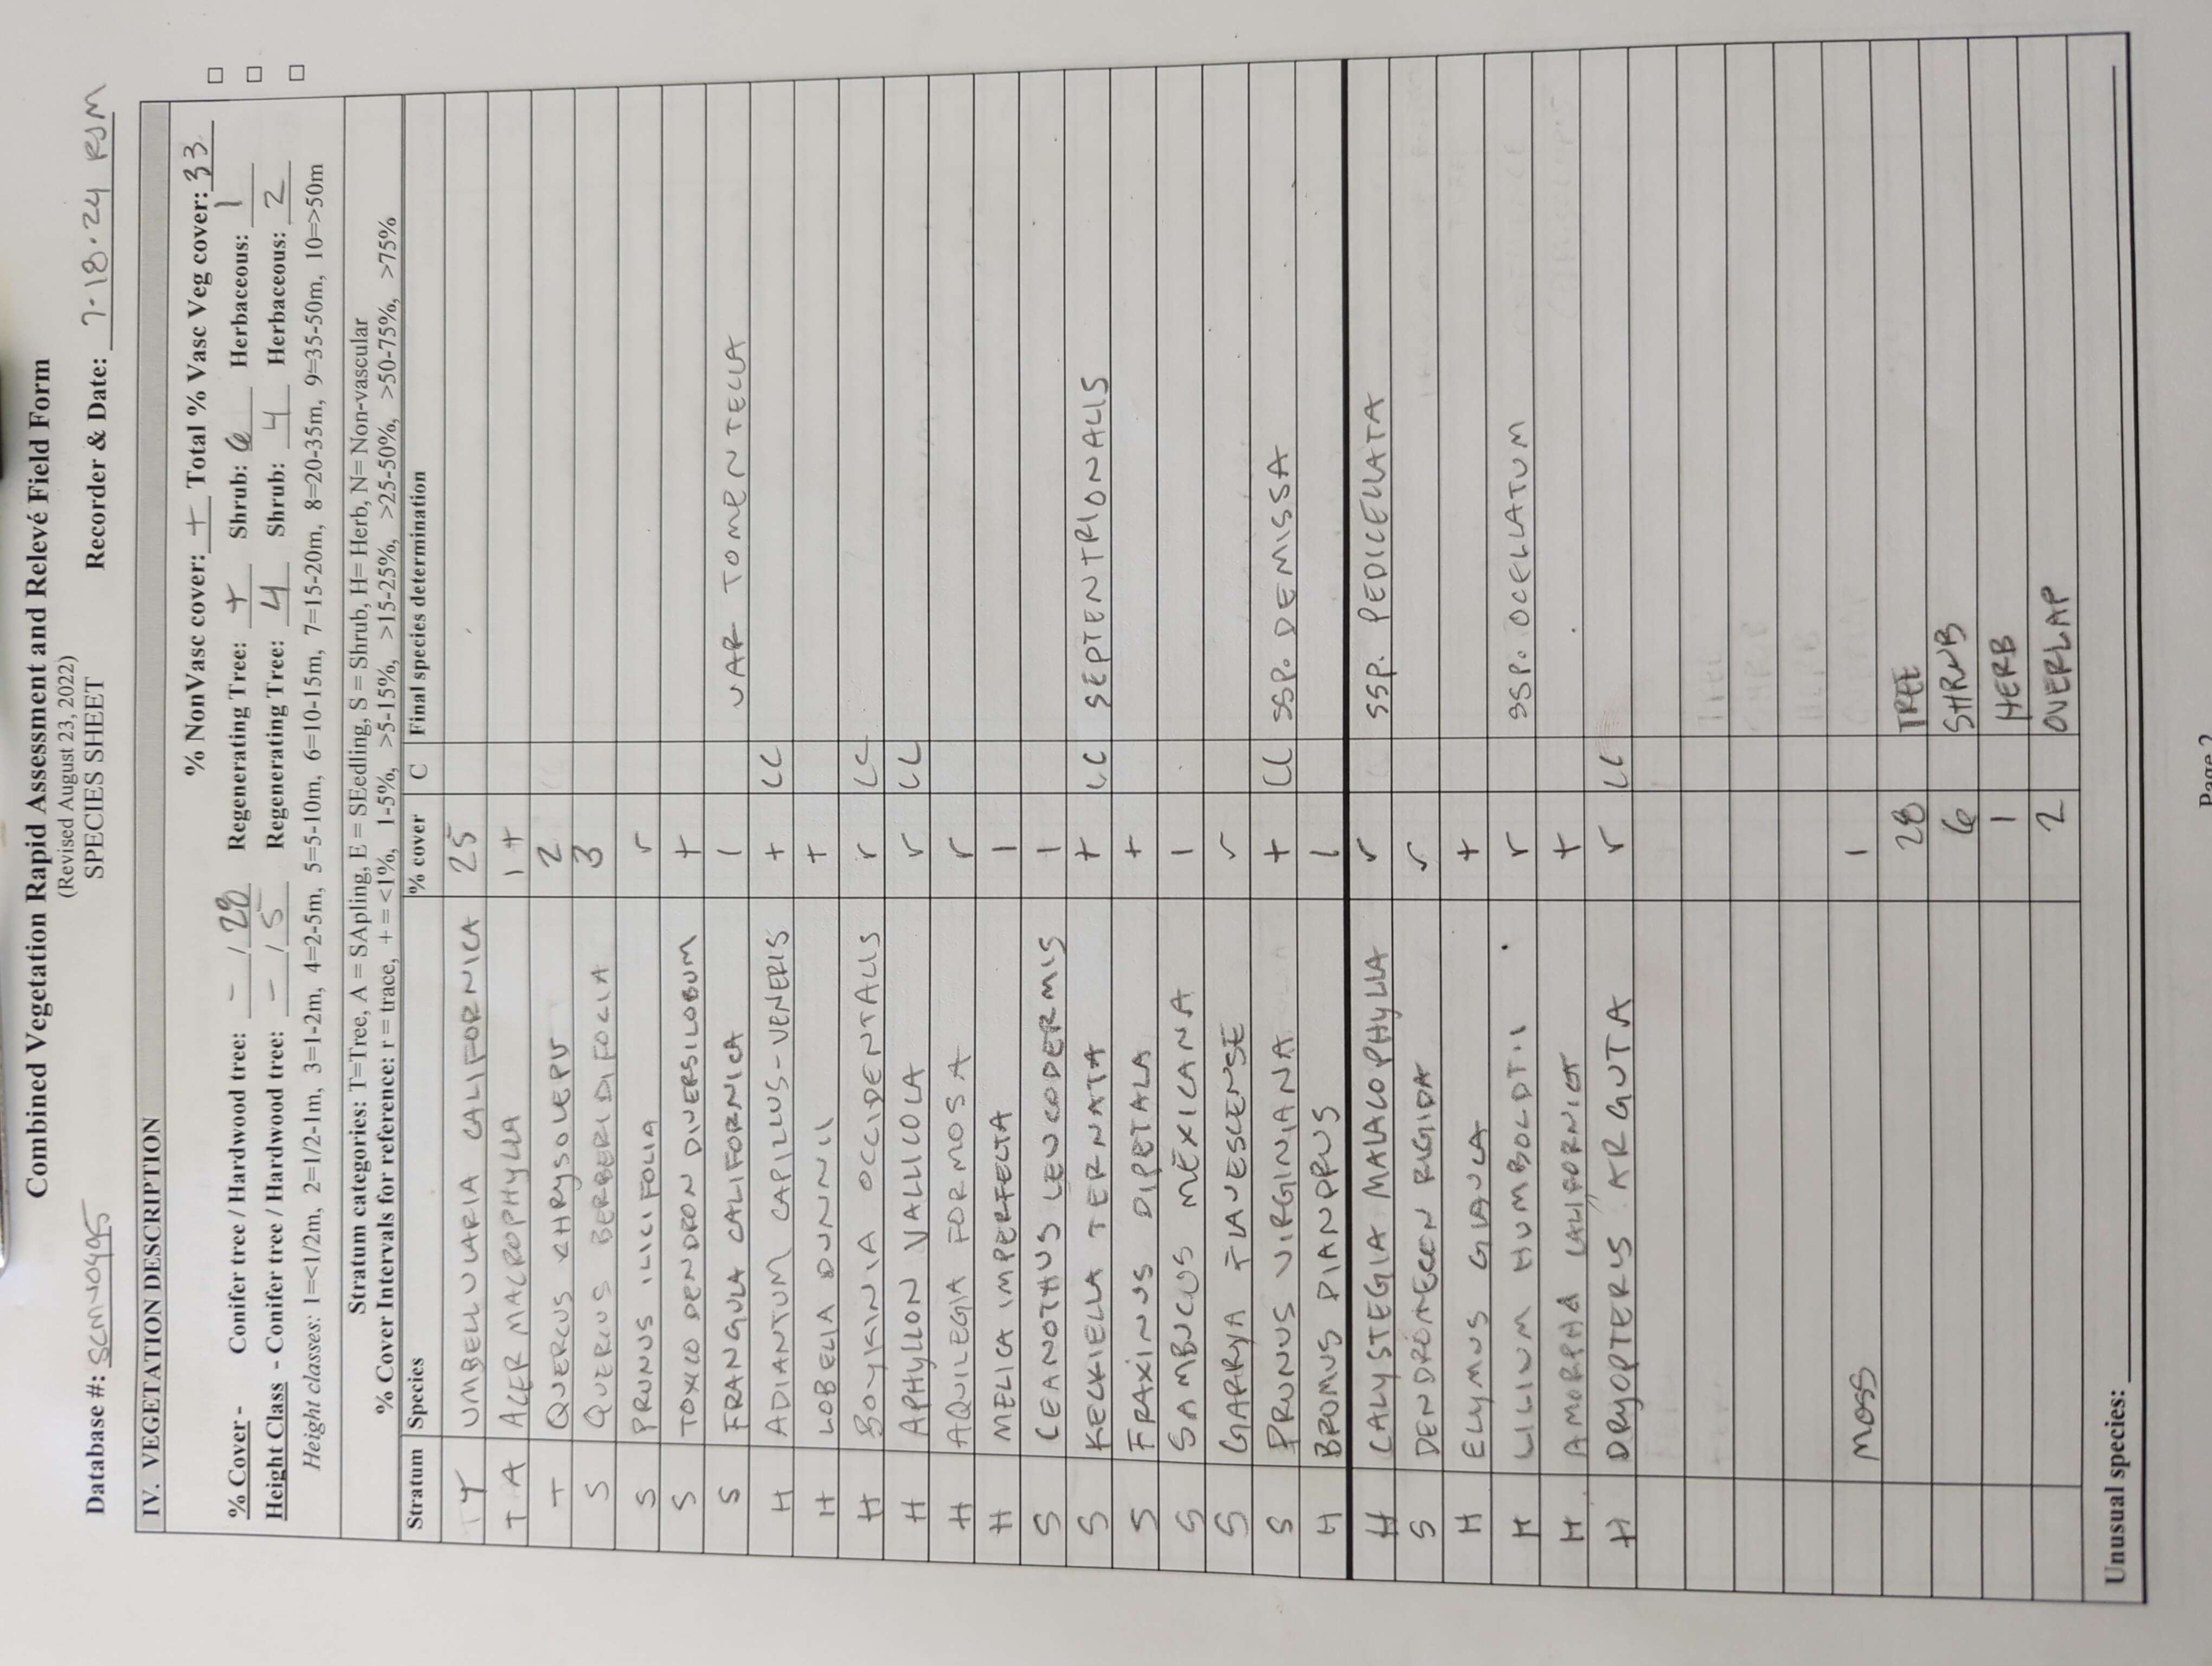 Combined Vegetation Rapid Assessment and Relevé Field Form
(Revised August 23, 2022)
Database #: SCMU0495 SPECIES SHEET Recorder & Date: 7-18-24 RJM
IV. VEGETATION DESCRIPTION
% NonVasc cover: + Total % Vasc Veg cover: 33
% Cover - Conifer tree / Hardwood tree: - / 28 Regenerating Tree: + Shrub: 6 Herbaceous: 1
Height Class - Conifer tree / Hardwood tree: - / 5 Regenerating Tree: 4 Shrub: 4 Herbaceous: 2
Height classes: 1=<1/2m, 2=1/2-1m, 3=1-2m, 4=2-5m, 5=5-10m, 6=10-15m, 7=15-20m, 8=20-35m, 9=35-50m, 10=>50m
Stratum categories: T=Tree, A = SApling, E = SEedling, S = Shrub, H= Herb, N= Non-vascular
% Cover Intervals for reference: r = trace, + = <1%, 1-5%, >5-15%, >15-25%, >25-50%, >50-75%, >75%
Stratum Species % cover C Final species determination
T UMBELLULARIA CALIFORNICA 25
T A ACER MACROPHYLLA 1 +
T QUERCUS CHRYSOLEPU 2
S QUERCUS BERBERIDIFOLIA 3
S PRUNUS ILICIFOLIA r
S TOXICODENDRON DIVERSILOBUM +
S FRANGULA CALIFORNICA 1 VAR TOMENTELLA
H ADIANTUM CAPILLUS-VENERIS + CC
H LOBELIA DUNNII +
H BOYKINIA OCCIDENTALIS r CC
H APHYLLON VALLICOLA r CC
H AQUILEGIA FORMOSA r
H MELICA IMPERFECTA 1
S CEANOTHUS LEUCODERMIS 1
S KECKIELLA TERNATA + CC SEPTENTRIONALIS
S FRAXINUS DIPETALA +
S SAMBUCUS MEXICANA 1
S GARRYA FLAVESCENSE r
S PRUNUS VIRGINIANA + CC SSP. DEMISSA
H BROMUS DIANDRUS 1
H CALYSTEGIA MALACOPHYLLA r SSP. PEDICELLATA
S DENDROMECON RIGIDA r
H ELYMUS GLAUCA +
H LILIUM HUMBOLDTII r SSP. OCELLATUM
H AMORPHA CALIFORNICA +
H DRYOPTERIS ARGUTA r CC
MOSS 1
28 TREE
6 SHRUB
1 HERB
2 OVERLAP
Unusual species:
Page 2